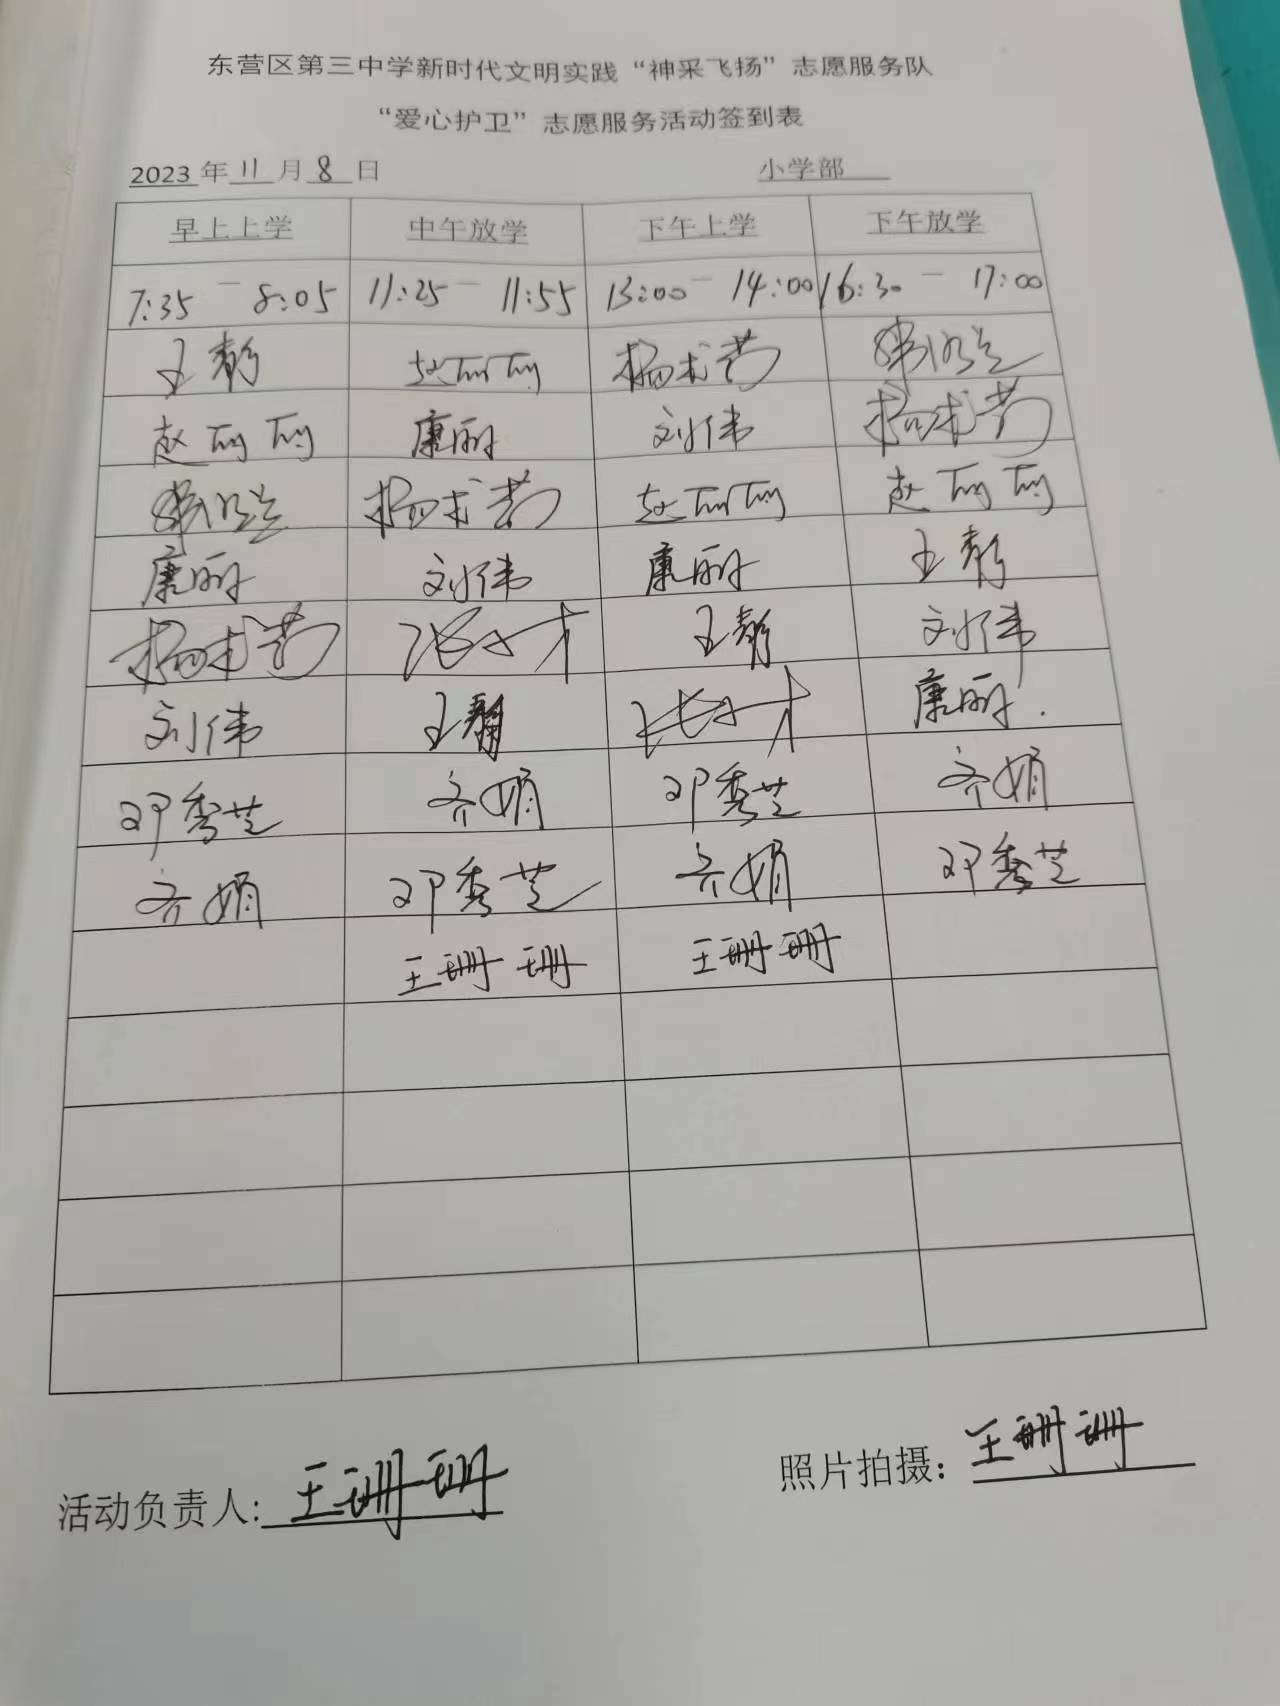 东营区第三中学新时代文明实践“神采飞扬”志愿服务队
“爱心护卫”志愿服务活动签到表
2023 年 11 月 8 日 小学部
早上上学 中午放学 下午上学 下午放学
7:35 - 8:05 11:25 - 11:55 13:00 - 14:00 16:30 - 17:00
王静 赵丽丽
赵丽丽 康丽 刘伟
赵丽丽 赵丽丽
康丽 刘伟 康丽 王静
王静 刘伟
刘伟 王静 康丽.
邓秀芝 齐娟 邓秀芝 齐娟
齐娟 邓秀芝 齐娟 邓秀芝
王珊珊 王珊珊
活动负责人: 王珊珊 照片拍摄: 王珊珊